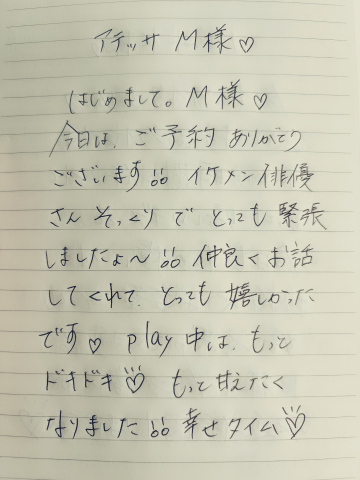 アテッサ M様♡
はじめまして。M様♡
今日は、ご予約ありがとう
ございます品 イケメン俳優
さんそっくりでとっても緊張
しましたょ〜品 仲良くお話
してくれて、とっても嬉しかった
です♡ play中は、もっと
ドキドキ♡ もっと甘えたく
なりました品 幸せタイム♡